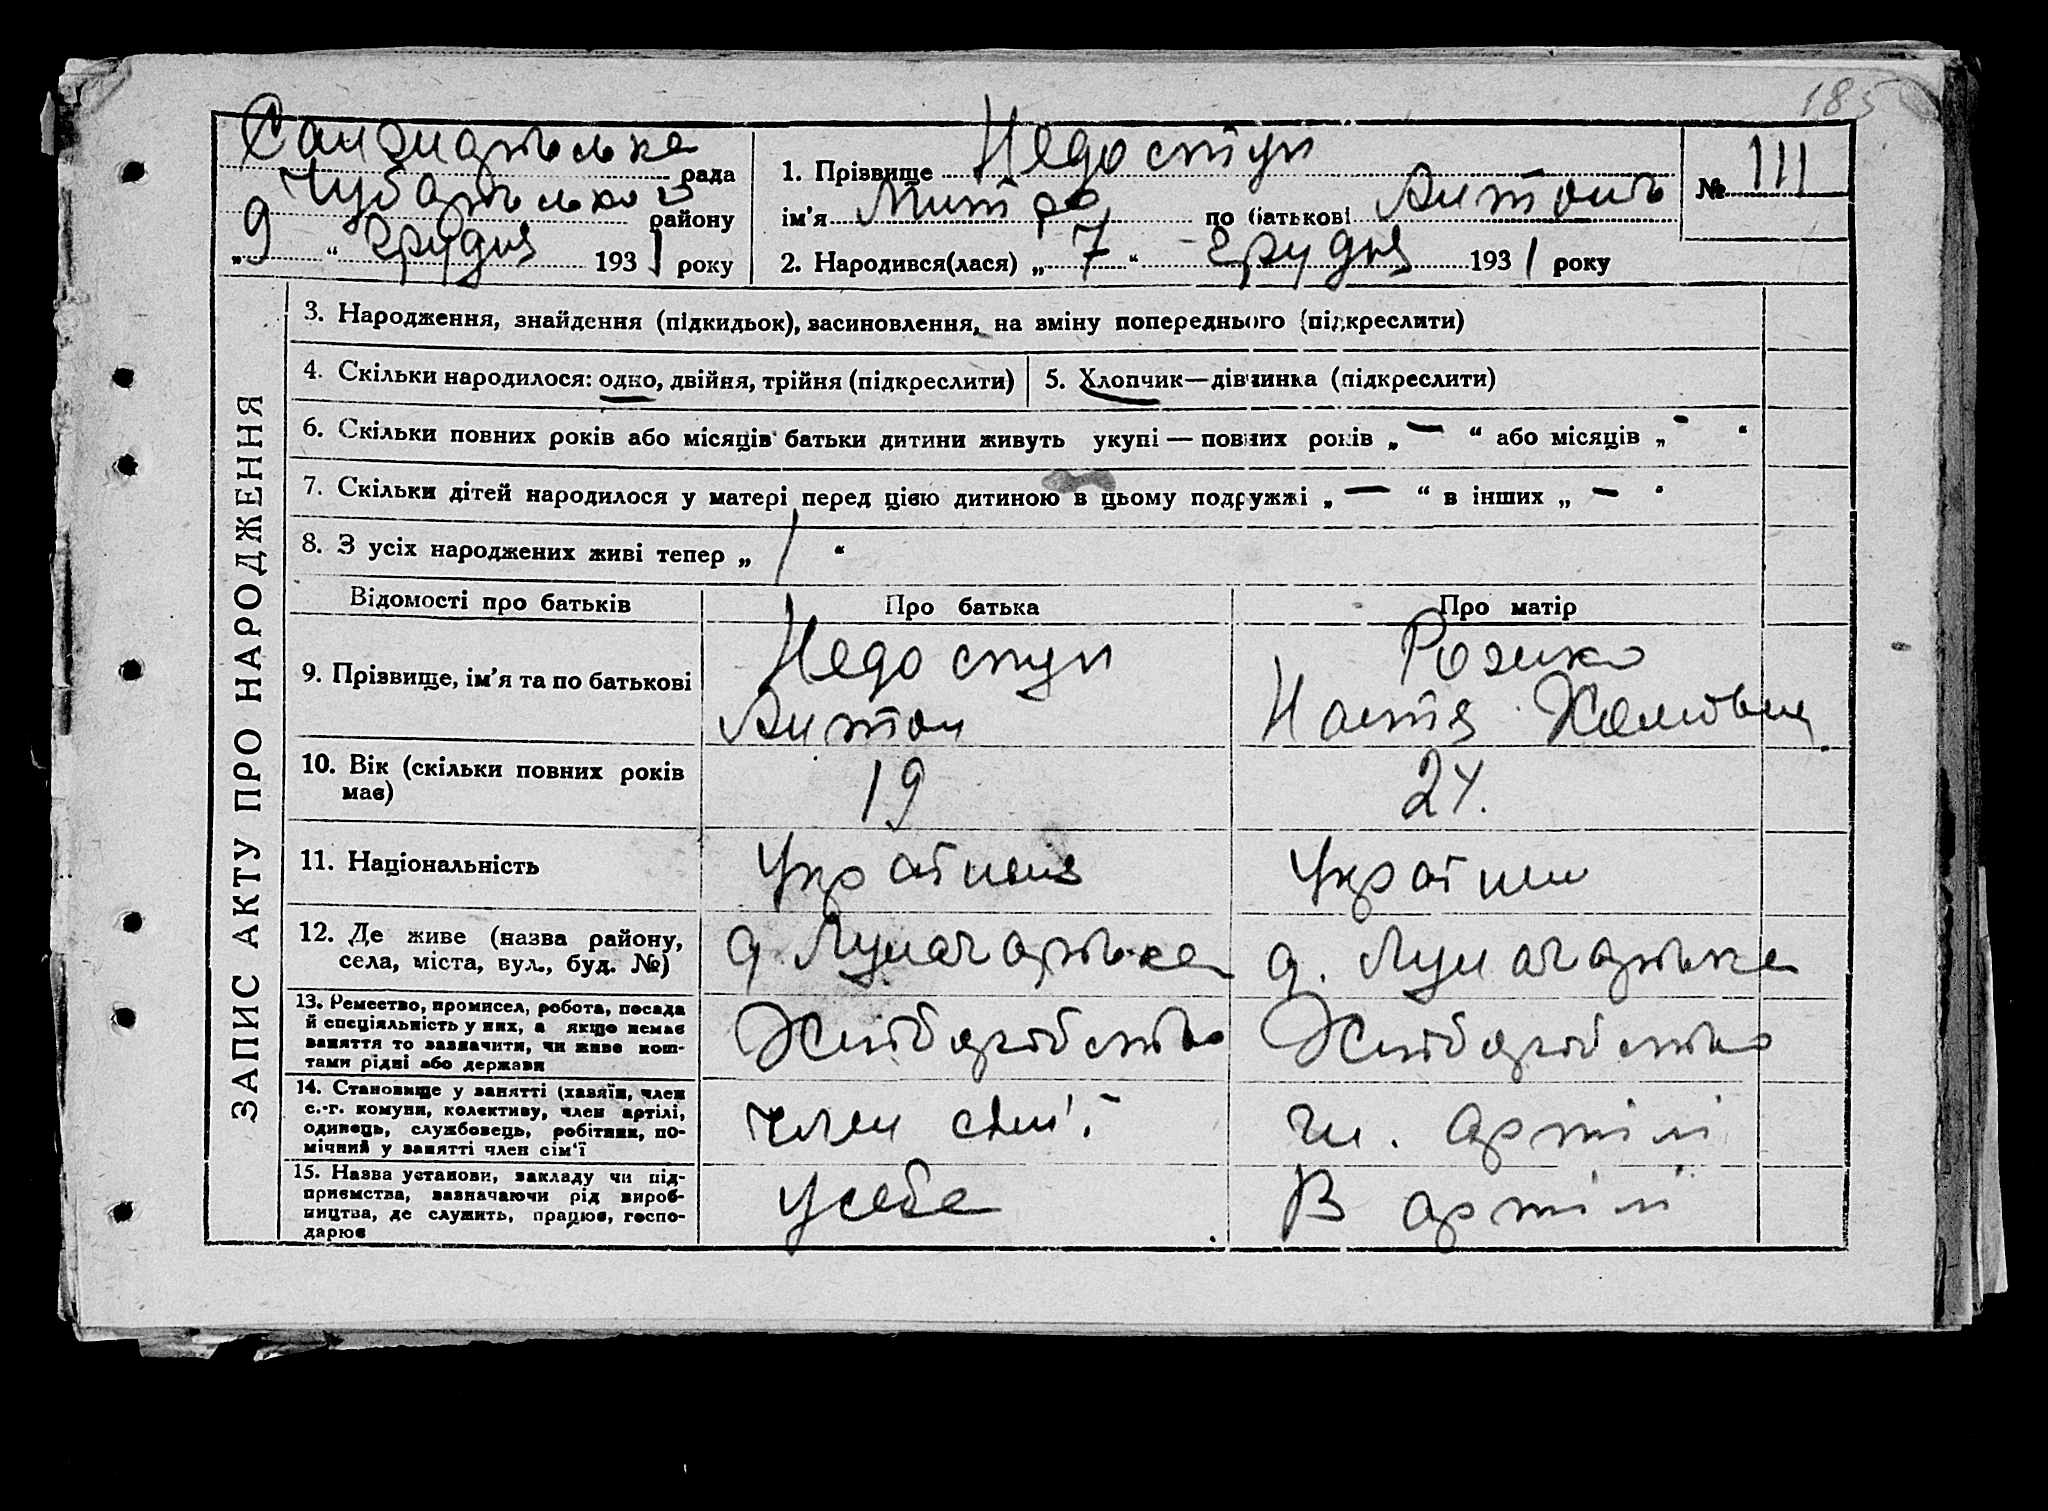 185
Сандиарська рада
Чубарського району
„ 9 “ грудня 1931 року
1. Прізвище Недоступ
ім’я Митро по батькові Антонъ
2. Народився(лася) „ 7 “ грудня 1931 року
№ 111
ЗАПИС АКТУ ПРО НАРОДЖЕННЯ
3. Народження, знайдення (підкидьок), засиновлення, на зміну попереднього (підкреслити)
4. Скільки народилося: одно, двійня, трійня (підкреслити)
5. Хлопчик—дівчинка (підкреслити)
6. Скільки повних років або місяців батьки дитини живуть укупі — повних років „ — “ або місяців „ - “
7. Скільки дітей народилося у матері перед цією дитиною в цьому подружжі „ — “ в інших „ — “
8. З усіх народжених живі тепер „ 1 “
Відомості про батьків
Про батька
Про матір
9. Прізвище, ім’я та по батькові
Недоступ
Антон
Настя
10. Вік (скільки повних років
має)
19
24.
11. Національність
Українец
Україн
12. Де живе (назва району,
села, міста, вул., буд. №)
д. Луначарська
д. Луначарська
13. Ремество, промисел, робота, посада
й спеціяльність у них, а якщо немає
заняття то зазначити, чи живе кош-
тами рідні або держави
Хліборобство
Хліборобство
14. Становище у занятті (хазяїн, член
с.-г. комуни, колективу, член артілі,
одинець, службовець, робітник, по-
мічний у занятті член сім‘ї
член сімї
чл. артілі
15. Назва установи, закладу чи під-
приємства, зазначаючи рід вироб-
ництва, де служить, працює, госпо-
дарює
У себе
В артілі